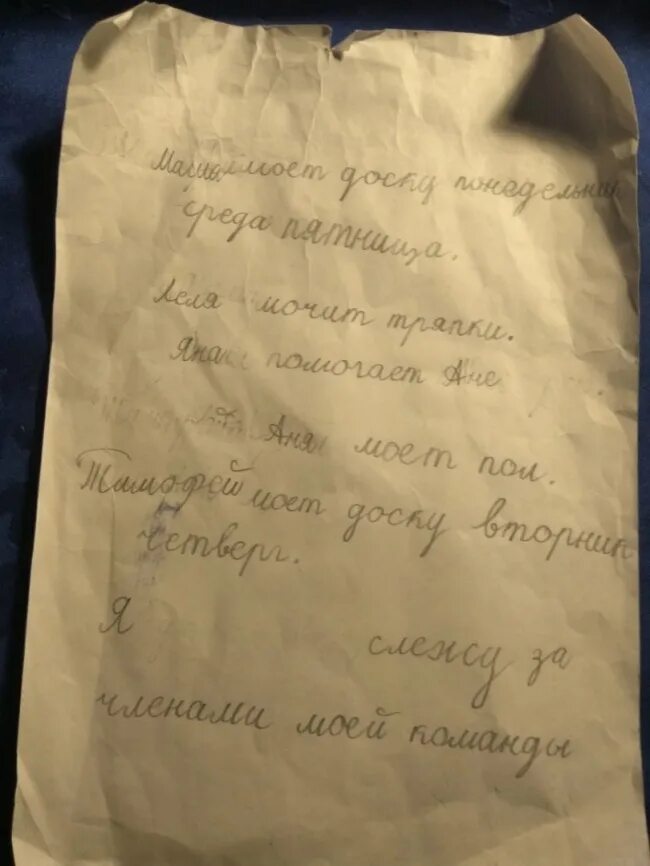 Маша моет доску понедельник
среда пятница.
Леля мочит тряпки.
Яна помогает Ане
Аня моет пол.
Тимофей моет доску вторник
четверг.
Я слежу за
членами моей команды